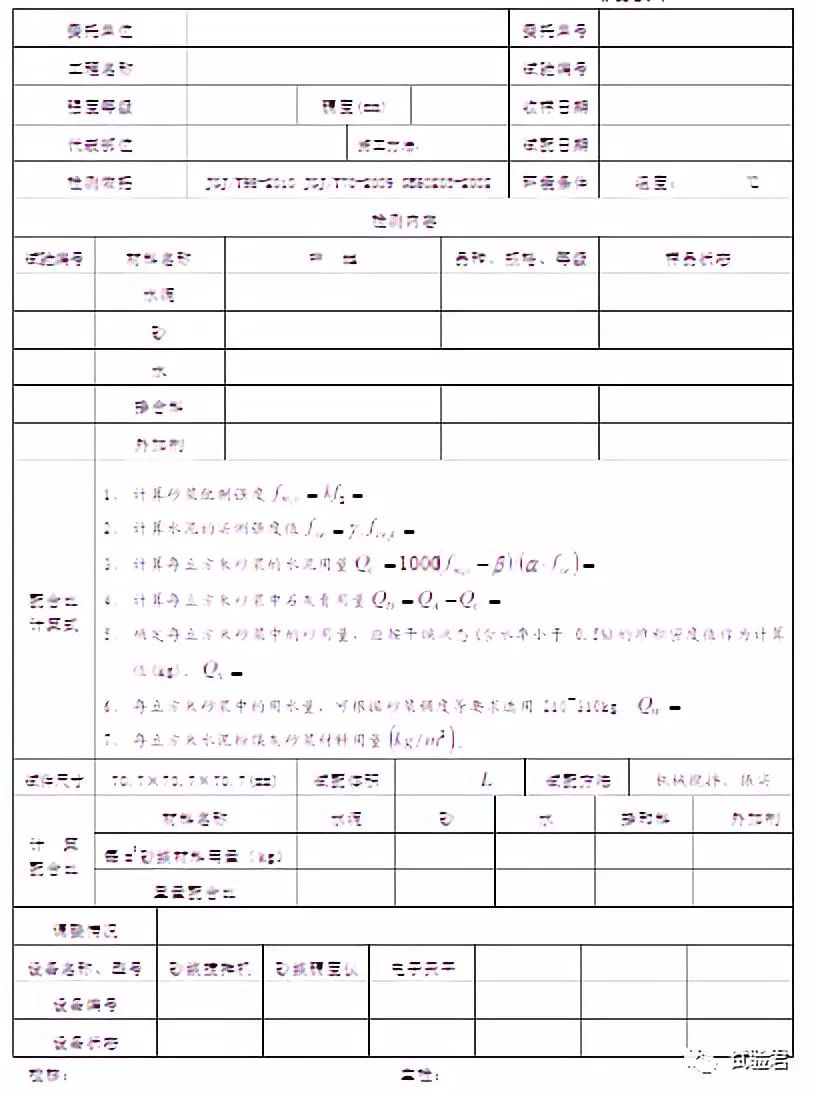 委托单位 委托单号
工程名称 试验编号
强度等级 稠度(mm) 收样日期
代表部位 施工方法: 试配日期
检测依据 JGJ/T98-2010 JGJ/T70-2009 环境条件 温度: ℃
检测内容
试验编号 材料名称 产 地 品种、规格、等级 样品状态
水泥
砂
水
掺合料
外加剂
配合比
计算式
1、计算砂浆配制强度 = kf₂ =
2、计算水泥的实测强度值
3、计算每立方米砂浆的水泥用量
4、计算每立方米砂浆中石灰膏用量
5、确定每立方米砂浆中的砂用量,应按干燥状态(含水率小于 0.5%)的堆积密度值作为计算
值(kg)。
6、每立方米砂浆中的用水量,可根据砂浆稠度等要求选用 210~310kg.
7、每立方米水泥粉煤灰砂浆材料用量(kg/m³).
试件尺寸 70.7×70.7×70.7(mm) 试配体积 L 试配方法 机械搅拌、振实
计 算
配合比
材料名称 水泥 砂 水 掺和料 外加剂
每m³砂浆材料用量(kg)
重量配合比
调整情况
设备名称、型号 砂浆搅拌机 砂浆稠度仪 电子天平
设备编号
设备状态
校核: 主检:
试验君